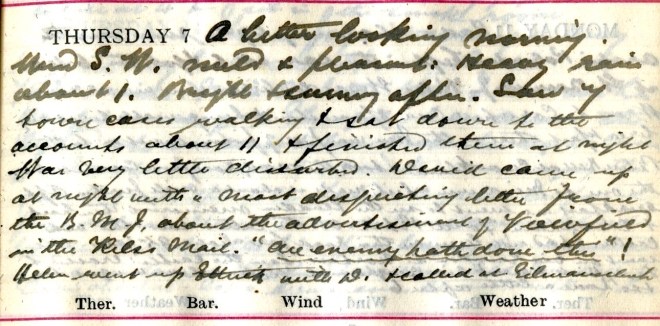 THURSDAY 7 A better looking morng.
Wind S. W. mild & pleasant. Heavy rain
about 1. Bright & sunny after. Saw my
town cases walking & sat down to the
accounts about 11 & finished them at night
Was very little disturbed. David came up
at night with a most dispiriting letter from
the B. M. J. about the advertisement of Viewfield
in the Mail. "An enemy hath done this"!
Helen went up Ettrick with D. & called at Gilmanscleuch
Ther. Bar. Wind Weather.